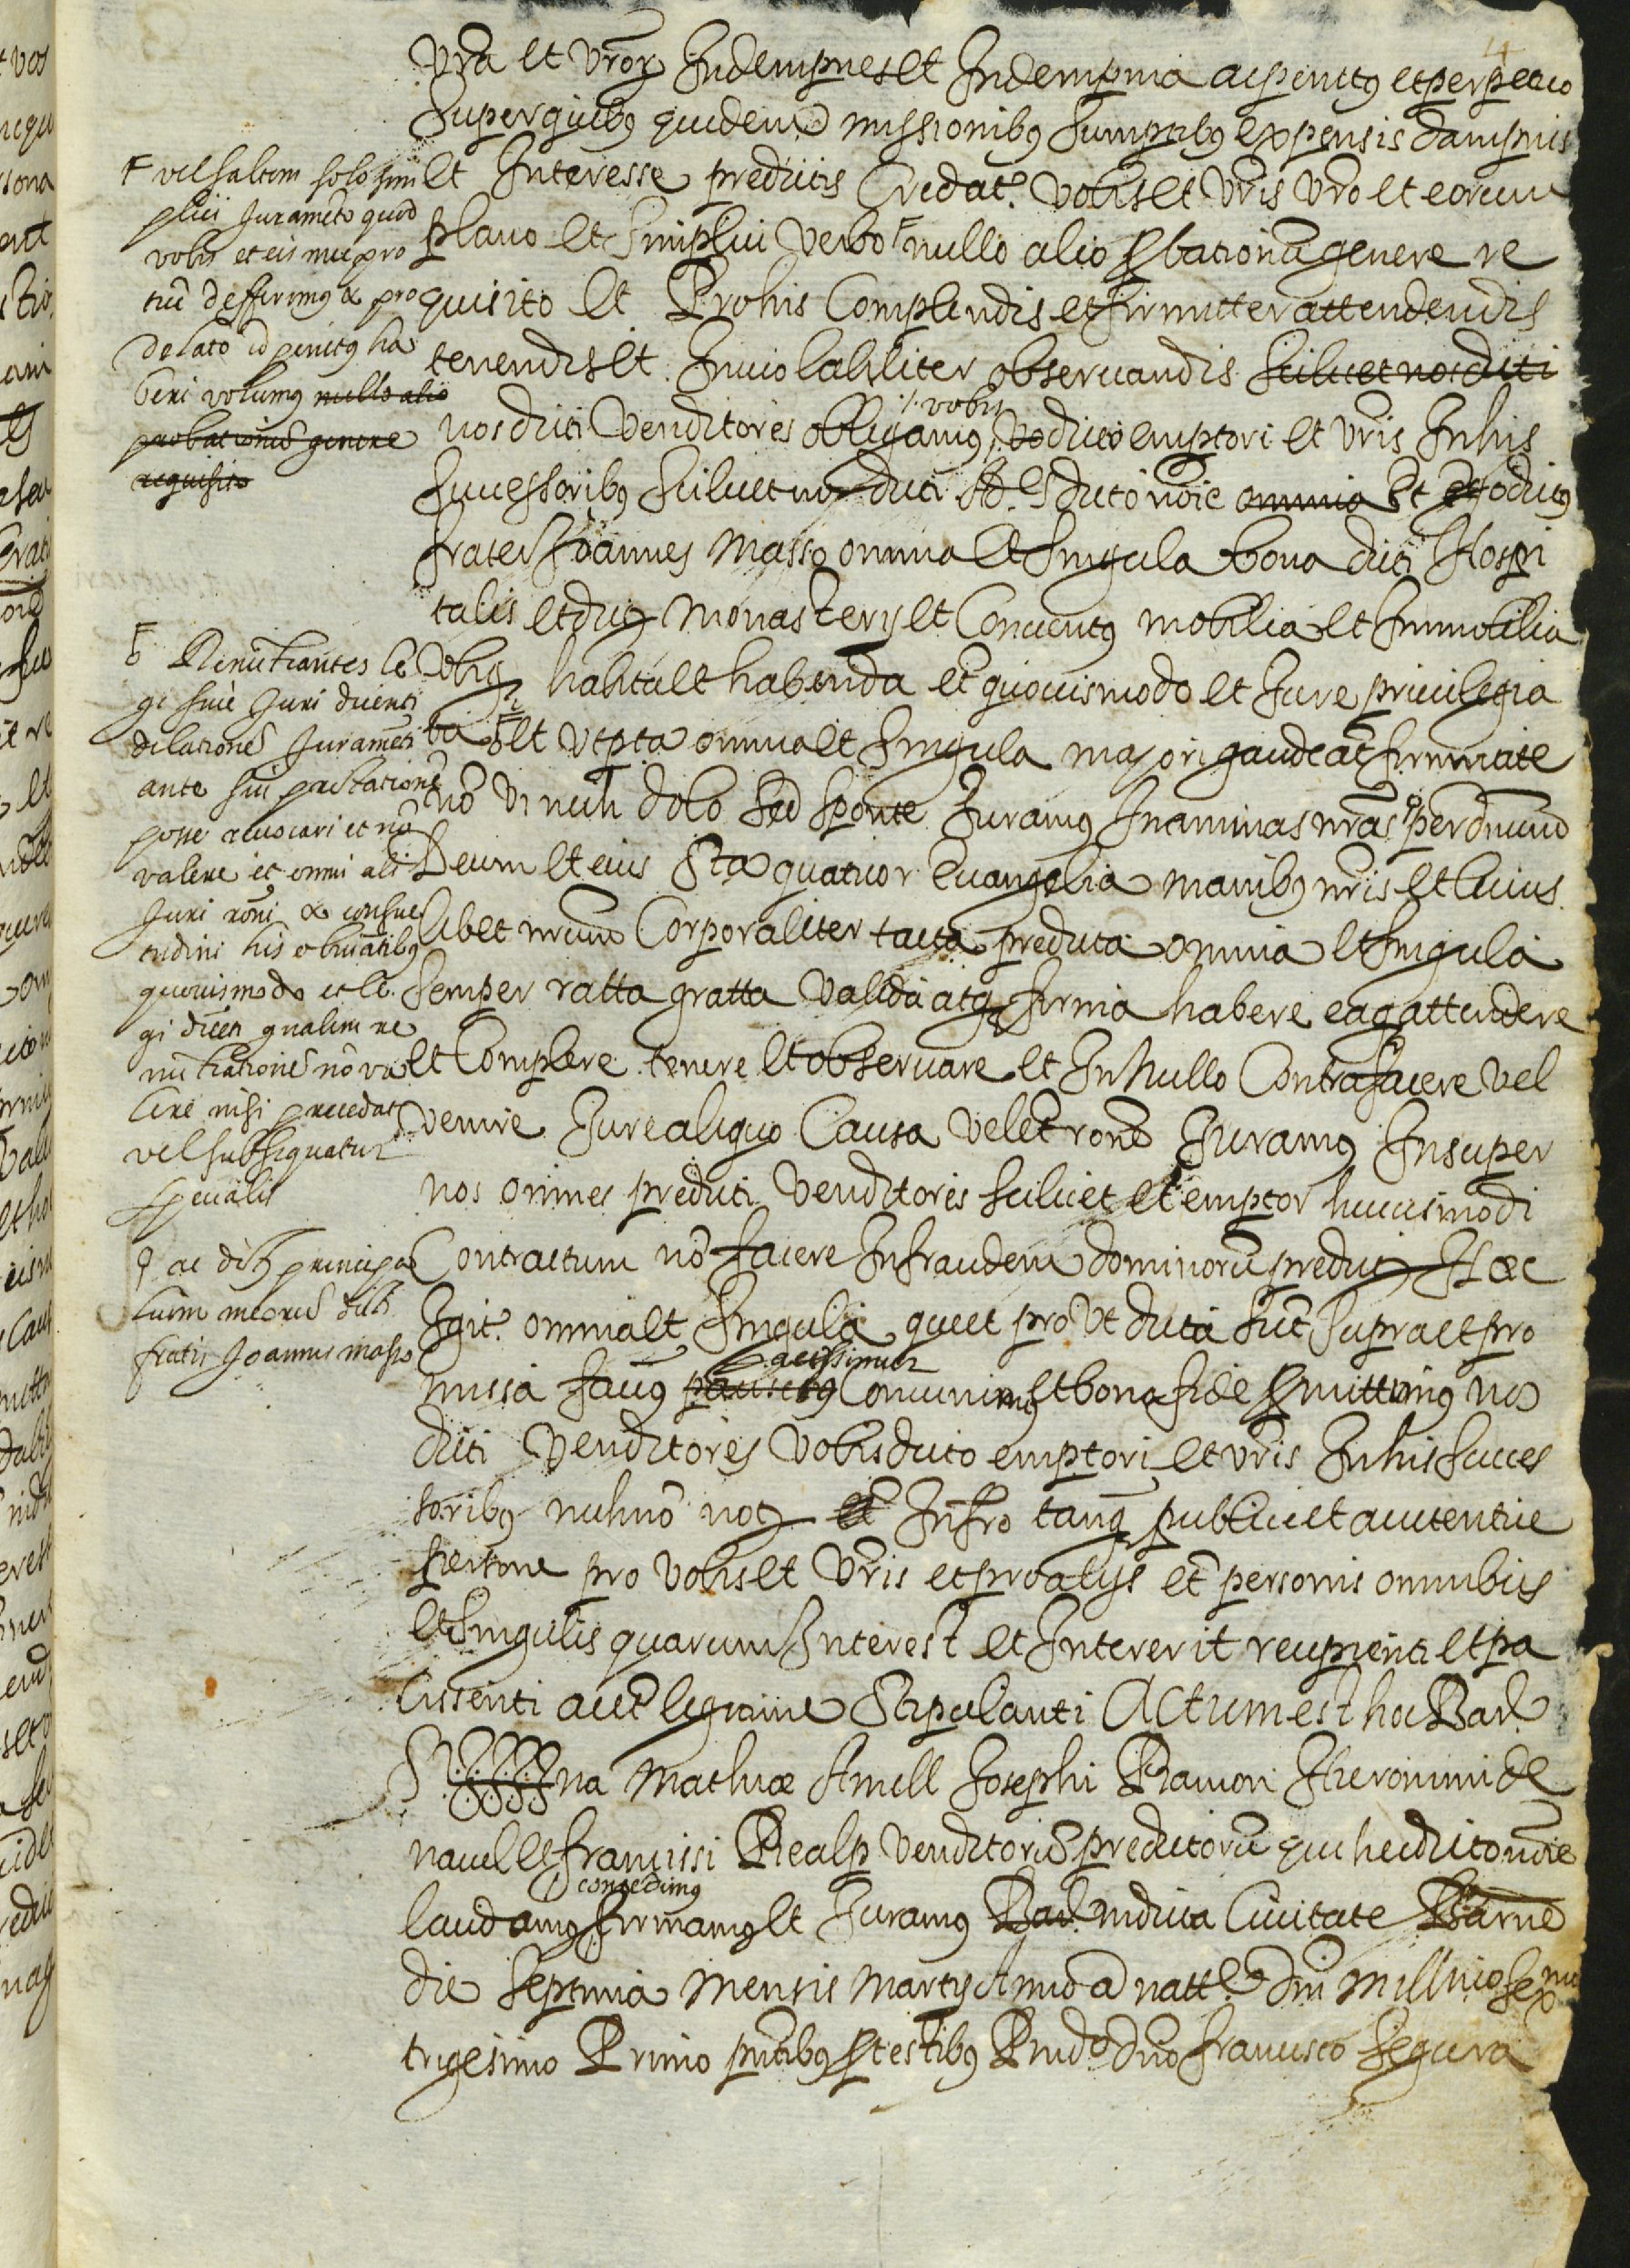 vr̃a et vr̃oꝝ Indempnes et Indempnia ac penitꝰ et perpetuo
super quibꝰ quidem missionibꝰ sumptibꝰ expensis dampnis
et Interesse predictis Credatr̃ vobis et vr̃is vr̃o et eorum
plano et simplici verbo nullo alio ꝓbationũ genere re
quisito et Pro his Complendis et firmitter attendendis
tenendis et Inviolabiliter observandis scilicet nos dicti
⁒ vobis
nos dicti Venditores obligamꝰ vo dicto emptori et vr̃is In his
successoribꝰ scilicet nos dicti dicto nõie omnia Et ego dictꝰ
frater Joannes Masso omnia et singula bona dicti Hospi
talis et dictoꝝ Monasterij et Conventꝰ mobilia et Immobilia
habita et habenda et quovismodo et Jure privilegia
ta et vt pr̃ta omnia et singula majori gaudeãt firmitate
nõ vi nec dolo sed sponte Juramꝰ In animas nr̃as per dñum
Deum et eius Sta quatuor Evangelia manibꝰ nr̃is et cuius
libet nr̃um Corporaliter tacta predicta omnia et singula
semper ratta gratta valida atqꝫ firma habere eaqꝫ attendere
et Complere tenere et observare et In nullo Contrafacere vel
venire Jure aliquo Causa vel et̃ rone Juramꝰ Insuper
nos omnes predicti Venditores scilicet et emptor huiusmodi
Contractum nõ facere In fraudem dominorũ predictoꝝ Hæc
Igitr̃ omnia et singula que et pro vt dicta sũt supra et pro
missa facimꝰ paciscimꝰ Convenimꝰ et bona fide ꝓmittimꝰ nos
paciscimur
dicti Venditores vobis dicto emptori et vr̃is In his succes
soribꝰ nec nõ notꝰ et Infr̃o tanqꝫ publice et autentice
persone pro vobis et vr̃is et pro alijs et̃ personis omnibus
et singulis quarum Interest et Intererit recipienti et pa
ciscenti ac et̃ legitime stipulanti Actum est hoc Bar̃
Sig na Mathiæ Amell Josephi Ramon Hieronimi de
navel et francisci Realp Venditorũ predictorũ qui hec dicto nõie
concedimꝰ
laudamꝰ firmamꝰ et Juramꝰ Bar̃ In dicta Civitate Barñe
die septima Mensis Martij Anno a natte dñi Millmo sex
trigesimo Primo pñtibꝰ ꝓ testibꝰ francisco Segura
vel saltem solo sim
plici Juramẽto quod
vobis et eis nuc pro
tũc defferimꝰ & pro
delato id penitꝰ ha
beri volumꝰ nullo alio
probationũ genere
requisito
Renũtiantes le
gi sive Juri dicenti
dilationẽ Juramẽti
ante sui præstationẽ
posse revocari et nõ
valere et omni alij
Juri rõni & consue
tudini his obviãtibꝰ
quovismodo et le
gi dicẽti gnalem re
nũtiationẽ nõ va
lere nisi precedat
vel subsequatur
specialis
ac dictoꝝ principa
lium meorũ dicti
fratris Joannis masso